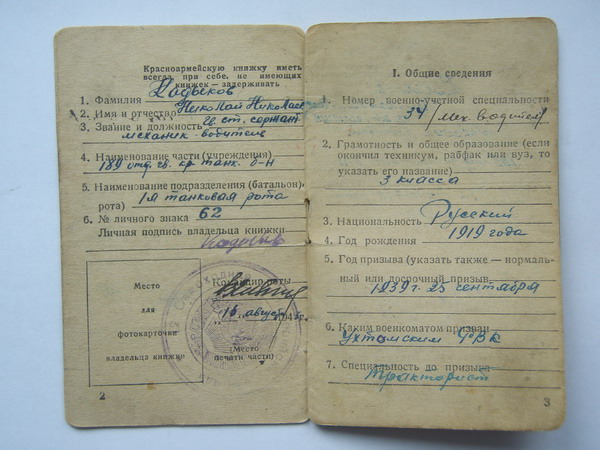 Красноармейскую книжку иметь
всегда при себе. не имеющих
книжек — задерживать
1. Фамилия
2. Имя и отчество Николай Николаев
3. Звание и должность гв. ст. сержант
механик-водитель
4. Наименование части (учреждения)
189 отд. гв. кр. танк. б-н
5. Наименование подразделения (батальон,
рота) 1я танковая рота
6. № личного знака 62
Личная подпись владельца книжки
Место
для
фотокарточки
владельца книжки
Командир роты
16 август
(Место
печати части)
2
I. Общие сведения
1. Номер военно-учетной специальности
34/мех. водитель
2. Грамотность и общее образование (если
окончил техникум, рабфак или вуз, то
указать его название)
3 класса
3. Национальность Русский
4. Год рождения 1919 года
5. Год призыва (указать также — нормаль-
ный или досрочный призыв
1939 г. 25 сентября
6. Каким военкоматом призван
Ухтомским РВК
7. Специальность до призыва
тракторист
3